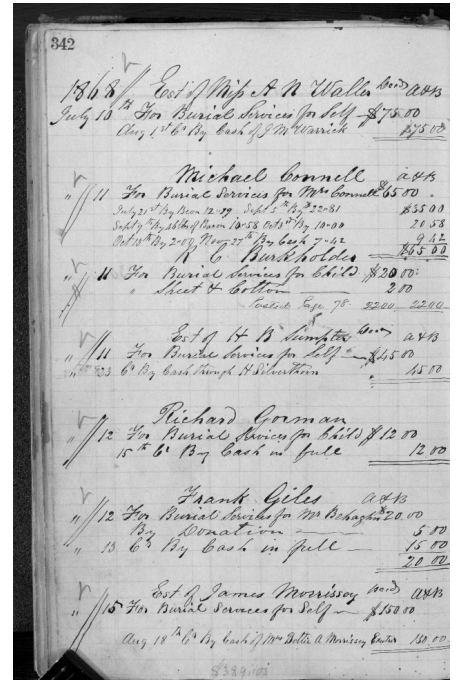 342
1868 Est of Miss A N Waller Decd A&B
July 10th For Burial Services for Self — $75.00
Aug 1st Cr By Cash of J McWarrick $75.00
Michael Connell A&B
" 11 For Burial Services for Mrs Connell $65.00
July 21st By Bacon 12-19 Sept 5th By 22-81 $35.00
Sept 9th By 26 lbs of Bacon 10-58 Oct 3rd By 10-00 20 58
Oct 15th By 2-00 Nov 27th By Cash 7-42 9 42
$65.00
R C Burkholder
" 11 For Burial Services for Child $20.00
" Sheet & Cotton — 2 00
Posted Page 78 22.00 22.00
Est of H B Sumpter Decd A&B
" 11 For Burial Services for Self — $45.00
" 23 Cr By Cash through H Silverthorn 45 00
Richard Gorman
" 12 For Burial Services for Child $12.00
15th Cr By Cash in full 12 00
Frank Giles A&B
" 12 For Burial Services for Mr $20.00
By Donation — 5 00
" 13 Cr By Cash in full — 15 00
20 00
Est of James Morrissey Decd A&B
" 15 For Burial Services for Self — $150.00
Aug 18th Cr By Cash of Mrs A Morrissey 150.00